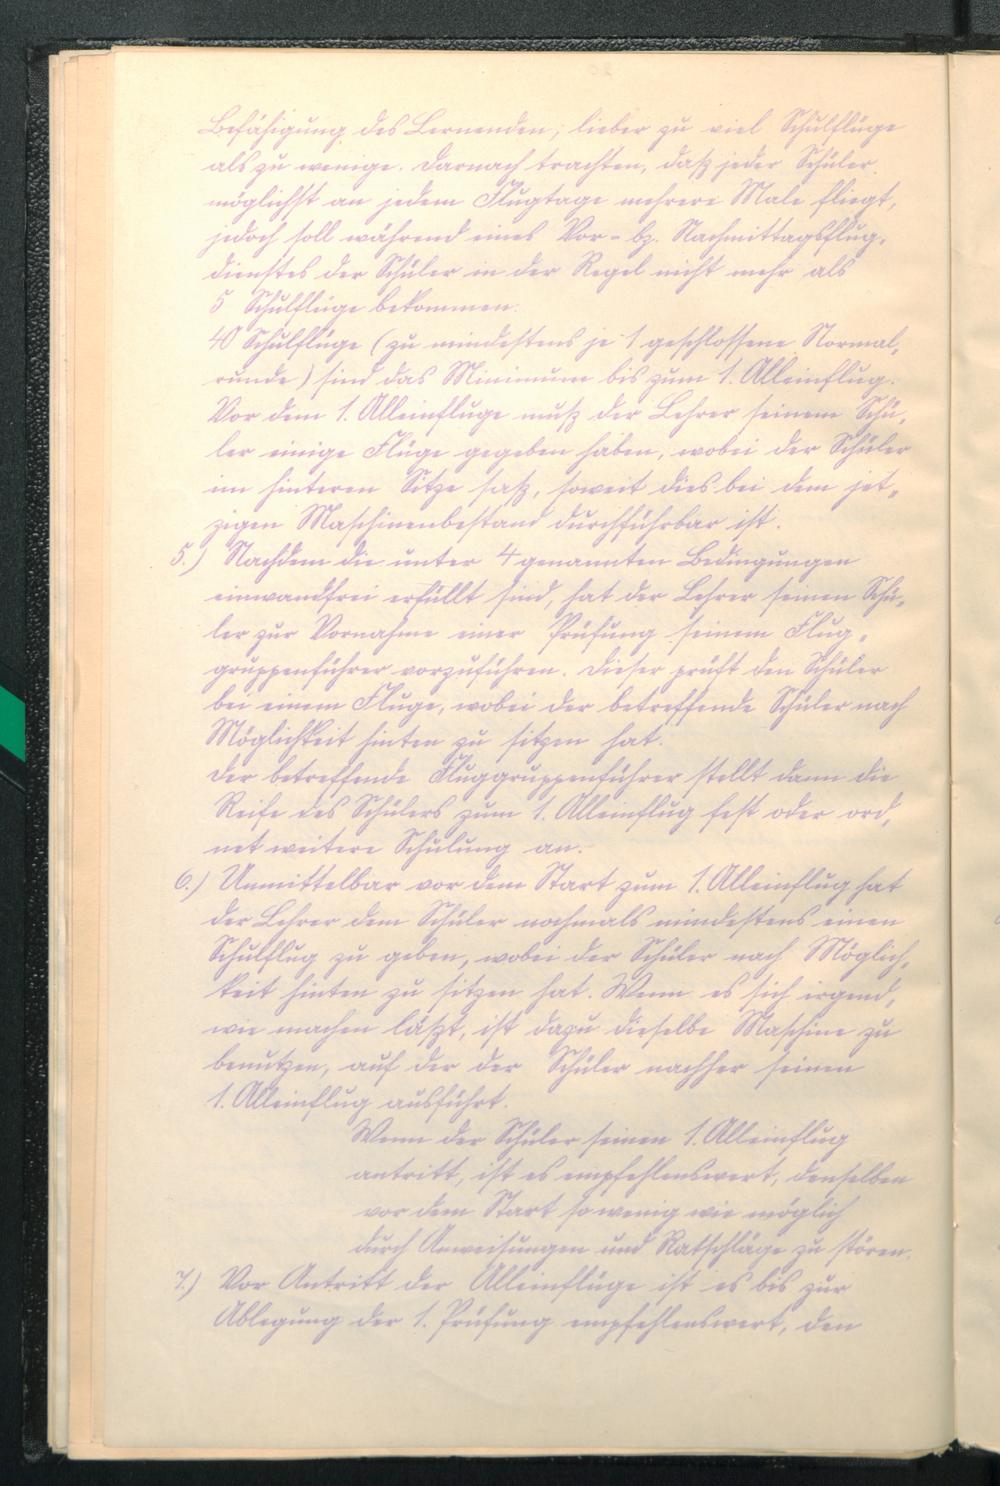 Befähigung des Lernenden; lieber zu viel Schulflüge
als zu wenige. Darnach trachten, daß jeder Schüler
möglichst an jedem Flugtage mehrere Male fliegt,
jedoch soll während eines Vor- bz. Nachmittagsflug„
dienstes der Schüler in der Regel nicht mehr als
5 Schulflüge bekommen.
40 Schulflüge (zu mindestens je 1 geschlossene Normal„
runde) sind das Minimum bis zum 1. Alleinflug.
Vor dem 1. Alleinfluge muß der Lehrer seinem Schü„
ler einige Flüge gegeben haben, wobei der Schüler
im hinteren Sitze saß, soweit dies bei dem jet„
zigen Maschinenbestand durchführbar ist.
5.) Nachdem die unter 4 genannten Bedingungen
einwandfrei erfüllt sind, hat der Lehrer seinen Schü„
ler zur Vornahme einer Prüfung seinem Flug„
gruppenführer vorzuführen. Dieser prüft den Schüler
bei einem Fluge, wobei der betreffende Schüler nach
Möglichkeit hinten zu sitzen hat.
Der betreffende Fluggruppenführer stellt dann die
Reife des Schülers zum 1. Alleinflug fest oder ord„
net weitere Schulung an.
6.) Unmittelbar vor dem Start zum 1. Alleinflug hat
der Lehrer dem Schüler nochmals mindestens einen
Schulflug zu geben, wobei der Schüler nach Möglich„
keit hinten zu sitzen hat. Wenn es sich irgend„
wie machen läßt, ist dazu dieselbe Maschine zu
benutzen, auf der der Schüler nachher seinen
1. Alleinflug ausführt.
Wenn der Schüler seinen 1. Alleinflug
antritt, ist es empfehlenswert, denselben
vor dem Start so wenig wie möglich
durch Anweisungen und Ratschläge zu stören.
7.) Vor Antritt der Alleinflüge ist es bis zur
Ablegung der 1. Prüfung empfehlenswert, den